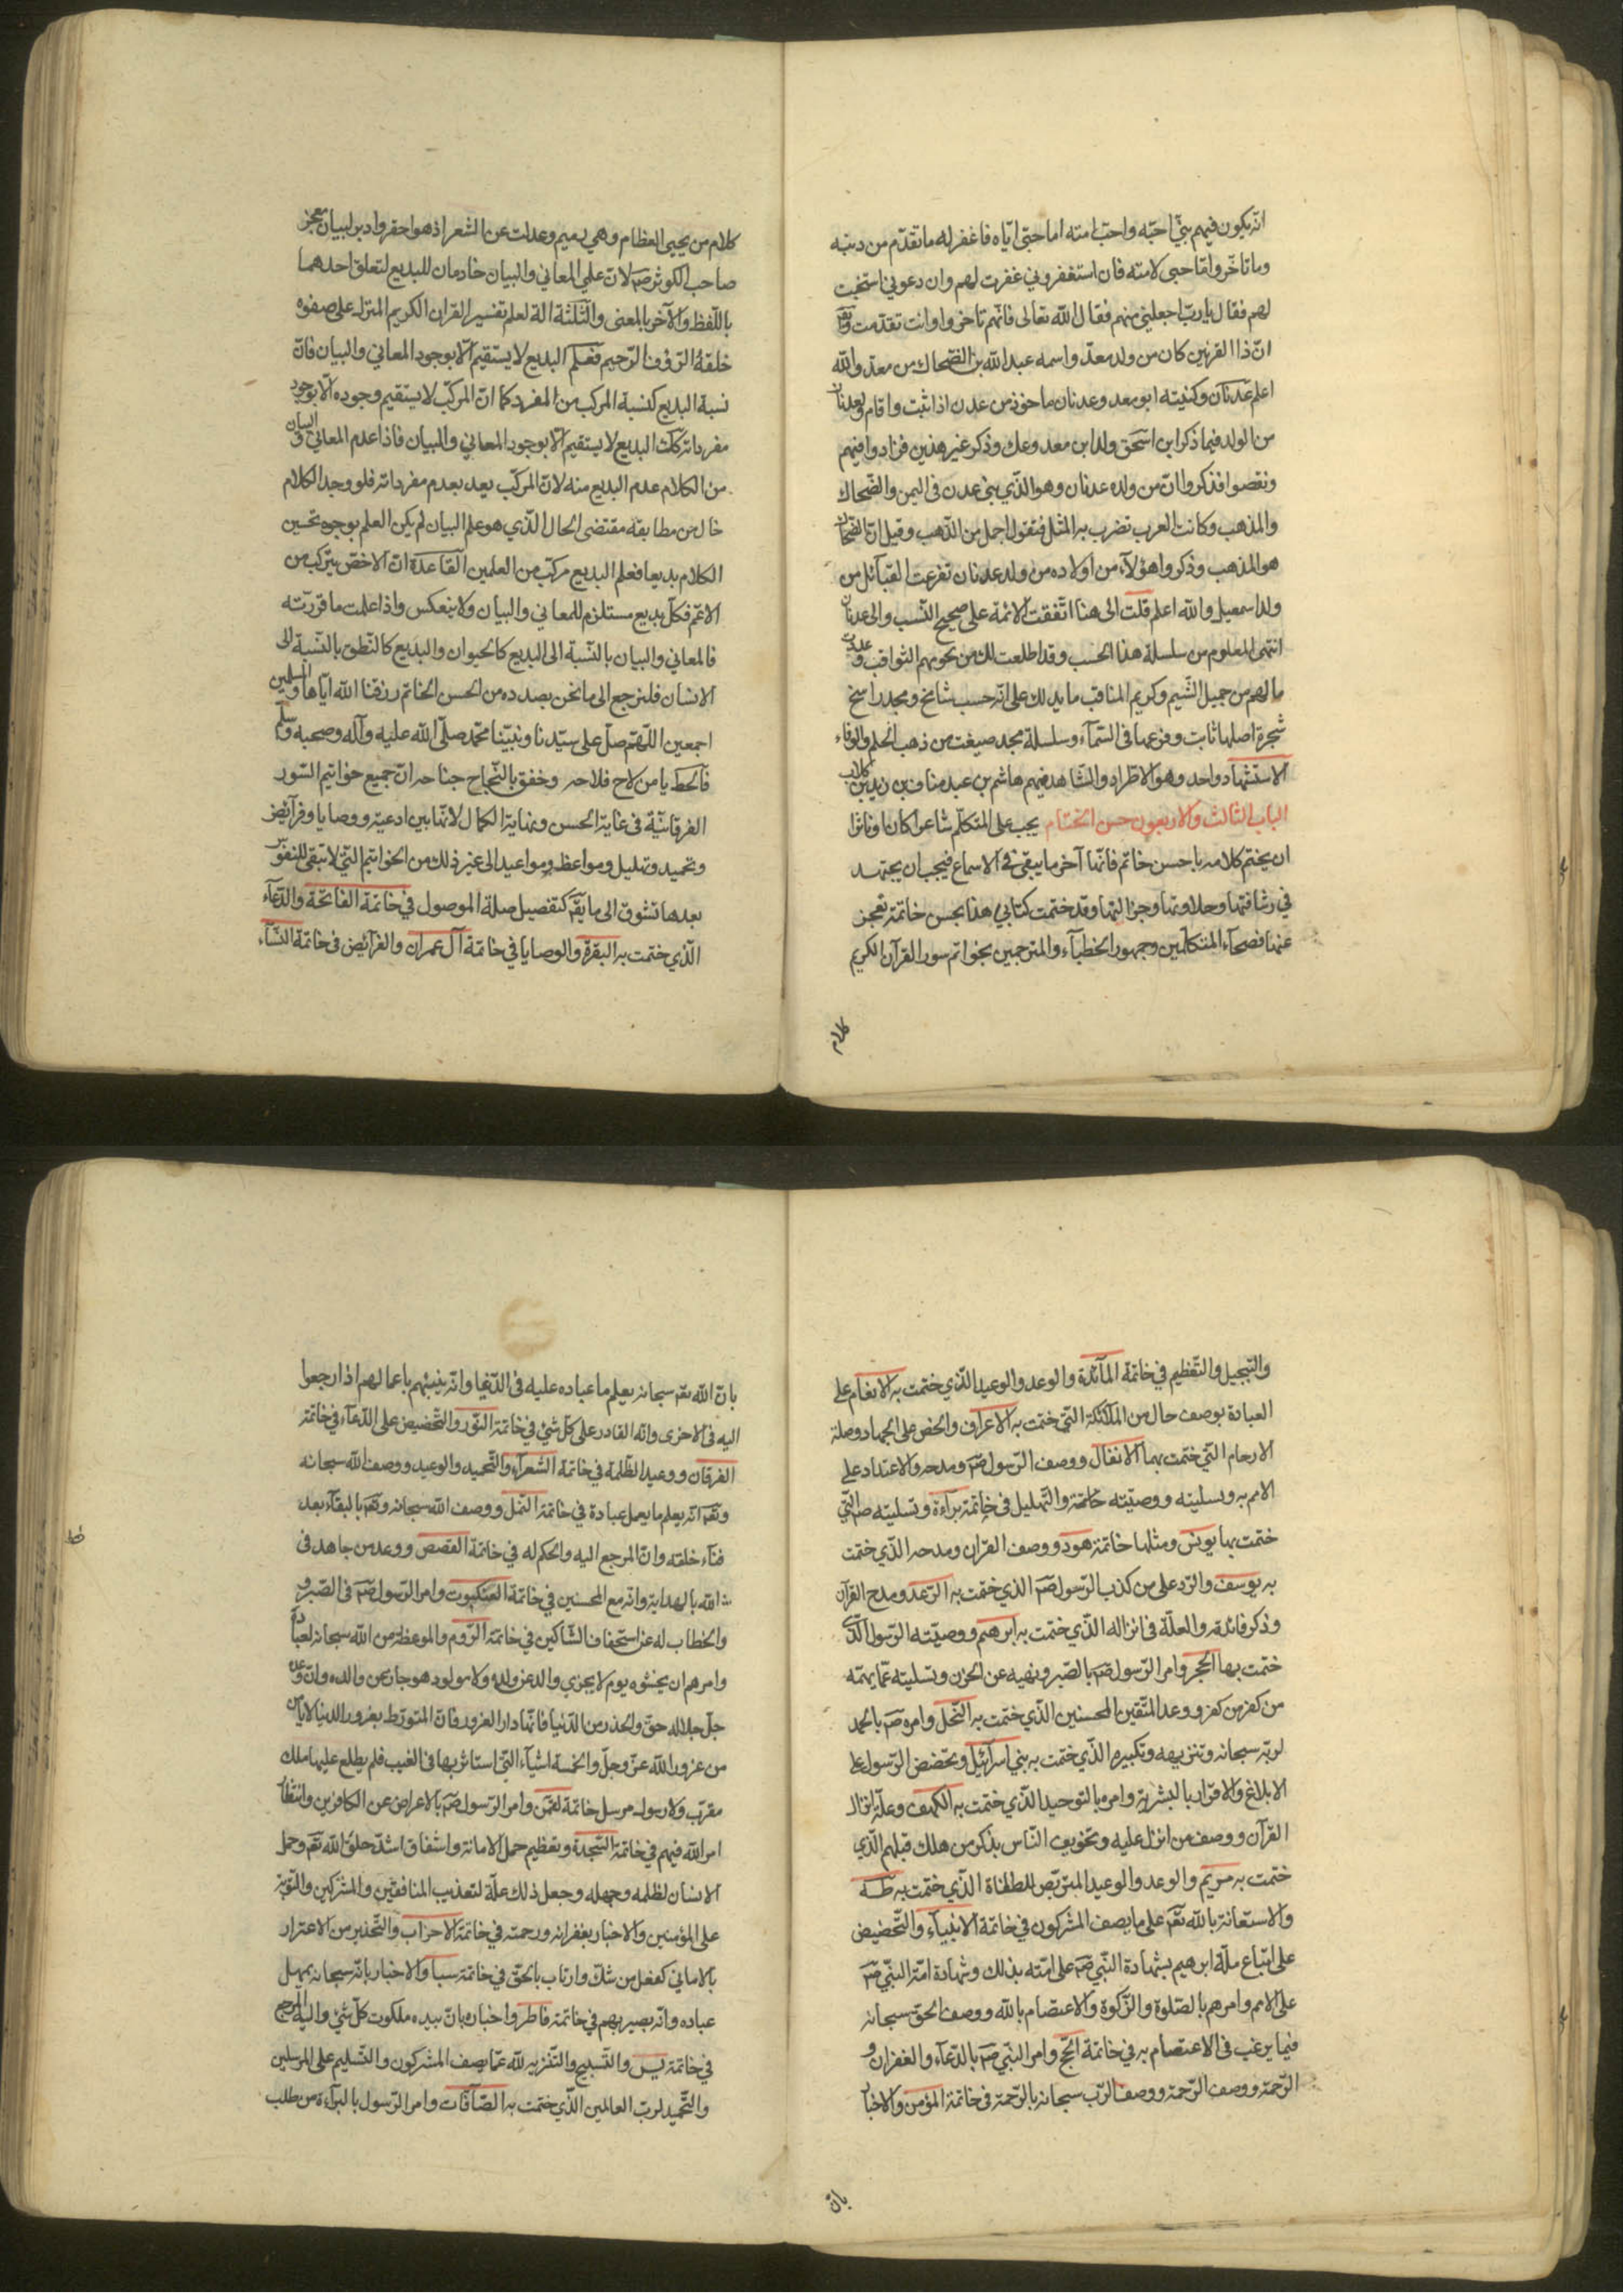 انه يكون فيهم نبيّ احبّه واحبّ امته اما حبّى ايّاه فاغفر له ما تقدّم من دنبه
وما تاخّر وامّا حبى لامته فان استغفرونى غفرت لهم وان دعونى استجبت
لهم فقال يا ربّ اجعلنى منهم فقال الله تعالى فانّهم تاخروا وانت تقدّمت
انّ ذا القرنين كان من ولد معدّ واسمه عبد الله بن الضّحاك بن معدّ والله
اعلم عدنان وكنيته ابو معد وعدنان ماخوذ من عدن اذا ثبت واقام ولعدنان
من الولد فيما ذكر ابن اسحق ولدا بن معد وعك وذكر غير هذين فزادوا فيهم
ونقصوا فذكروا انّ من ولده عدنان وهو الّذي بنى عدن فى اليمن والضّحاك
والمذهب وكانت العرب تضرب به المثل فتقول اجمل من المذهب وقيل انّ الضّحاك
هو المذهب وذكروا هؤلآء من اولاده من ولد عدنان تفرعت القبآئل من
ولد اسمعيل والله اعلم قلت الى هنا اتّفقت الائمّة على صحيح النّسب والى عدنان
انتهى المعلوم من سلسلة هذا الحسب وقد اطلعت لك من نجومهم الثواقب
ما لهم من جميل الشّيم وكريم المناقب ما يدلك على انّه حسب شامخ ومجد راسخ
شجرة اصلها ثابت وفرعها فى السّمآء وسلسلة مجد صيغت من ذهب الحلم والوفاء
الاستشهاد واحد وهو الاطراد والشّاهد فيهم هاشم بن عبد مناف بن زيد بن كلاب
الباب الثالث والاربعون حسن الختام يجب على المتكلّم شاعرا كان او ناثرا
ان يختم كلامه باحسن خاتم فانّها آخر ما يبقى فى الاسماع فيجب ان يجتهد
في رشاقتها وحلاوتها وجزالتها وقد ختمت كتابي هذا بحسن خاتمة تعجز
عنها فصحآء المتكلّمين وجمهور الخطبآء والمترجمين بخواتم سور القرآن الكريم
كلام
كلام من يحيى العظام وهي رميم وعدلت عن الشعر اذ هو احقر وادبر لبيان معجز
صاحب الكوثر صم لانّ علمي المعاني والبيان خادمان للبديع لتعلق احدهما
باللّفظ والآخر بالمعنى والثّلثة الة لعلم تفسير القران الكريم المنزل على صفوه
خلقهُ الرّؤف الرّحيم فعلم البديع لا يستقيم الّا بوجود المعاني والبيان فانّ
نسبة البديع كنسبة المركب من المفرد كما انّ المركّب لا يستقيم وجوده الّا بوجود
مفرداته كذلك البديع لا يستقيم الّا بوجود المعاني والبيان فاذا عدم المعانى والبيان
من الكلام عدم البديع منه لانّ المركّب يعدم بعدم مفرداته فلو وجد الكلام
خال من مطابقة مقتضى الحال الّذي هو علم البيان لم يكن العلم بوجوه تحسين
الكلام بديعا فعلم البديع مركّب من العلمين القاعدة انّ الاخصّ يتركب من
الاعمّ فكلّ بديع مستلزم للمعاني والبيان ولا ينعكس واذا علمت ما قررته
فالمعاني والبيان بالنّسبة الى البديع كالحيوان والبديع كالنّطق بالنّسبة الى
الانسان فلنرجع الى ما نحن بصدده من الحسن الخاتم رزقنا الله ايّاها والمسلمين
اجمعين اللّهمّ صلّ على سيّدنا ونبيّنا محمّد صلّى الله عليه وآله وصحبه وسلّم
فآلحظ يا من لاح فلاحه وخفق بالنّجاح جناحه انّ جميع خواتيم السّور
الفرقانيّة فى غاية الحسن ونهاية الكمال لانّها بين ادعية ووصايا وفرآئض
وتحميد وتهليل ومواعظ ومواعيد الى غير ذلك من الخواتيم الّتي لا تبقى للنفوس
بعدها تشوق الى ما بقى كتفصيل صلة الموصول في خاتمة الفاتحة والدّعآء
الّذي ختمت به البقرة والوصايا في خاتمة آل عمران والفرآئض فى خاتمة النّسآء
والتّبجيل والتّعظيم في خاتمة المآئدة والوعد والوعيد الّذي ختمت به الانعام على
العبادة بوصف حال من الملآئكة الّتي ختمت به الاعراف والحض على الجهاد وصلة
الارحام الّتي ختمت بهما الانفال ووصف الرّسول صم ومدحه والاعتداد على
الامم به وتسليته ووصيّته خاتمة والتّهليل فى خاتمة برآءة وتسليته صم الّتي
ختمت بها يونس ومثلها خاتمة هود ووصف القران ومدحه الّذي ختمت
به يوسف والرّد على من كذب الرّسول صم الذي ختمت به الرّعد ومدح القرآن
وذكر فائدته والعلّة فى انزاله الّذي ختمت به ابرهيم ووصيّته الرّسول الّذى
ختمت بها الحجر وامر الرّسول صم بالصّبر ونهيه عن الحزن وتسليته عمّا يهمّه
من كفر من كفر ووعد المتّقين المحسنين الّذي ختمت به النّحل وامره صم بالحمد
لربّه سبحانه وتنزيهه وتكبيره الّذي ختمت به بني اسرآئيل وتحضض الرّسول على
الابلاغ والاقرار بالبشرية وامره بالتوحيد الّذي ختمت به الكهف وعلّة انزال
القرآن ووصف من انزل عليه وتخويف النّاس بذكر من هلك قبلهم الّذي
ختمت به مريم والوعد والوعيد المتربّص للطغاة الّذي ختمت به طه
والاستعانة بالله تعم على ما يصف المشركون في خاتمة الانبيآء والتّحضيض
على اتّباع ملّة ابرهيم بشهادة النّبي صم على امّته بذلك وشهادة امّة النبّي صم
على الامم وامرهم بالصّلوة والزّكوة والاعتصام بالله ووصف الحق سبحانه
فيما يرغب فى الاعتصام به في خاتمة الحجّ وامر النّبي صم بالدّعآء والغفران و
الرّحمة ووصف الرّحمة ووصف الرّب سبحانه بالرّحمة فى خاتمة المؤمن والاخبار
بان
بانّ الله تعم سبحانه يعلم ما عباده عليه فى الدّنيا وانّه ينبئهم باعمالهم اذا رجعوا
اليه فى الاخرى وانّه القادر على كلّ شئ في خاتمة النّور والتّحضيض على الدّعآء في خاتمة
الفرقان ووعيد الظّلمة في خاتمة الشّعرآء والتّحميد والوعيد ووصف الله سبحانه
وتعم انّه يعلم ما يعمل عبادة في خاتمة النّمل ووصف الله سبحانه وتعم بالبقآء بعد
فنآء خلقه وانّ المرجع اليه والحكم له في خاتمة القصص ووعد من جاهد فى
الله بالهداية وانّه مع المحسنين في خاتمة العنكبوت وامر الرّسول صم فى الصّبر و
والخطاب له عن استخفاف الشّاكين في خاتمة الرّوم والموعظة من الله سبحانه لعباده
وامرهم ان يخشوه يوم لا يجزي والد عن ولده ولا مولود هو جاز عن والده وانّ وعده
جلّ جلاله حق والحذر من الدّنيا فانّها دار الغرور فانّ المتورّط بغرور الدنيا لا يامن
من غرور الله عزّ وجلّ والخمسة اشيآء الّتى استاثر بها فى الغيب فلم يطلع عليها ملك
مقرّب ولا رسول مرسل خاتمة لقمن وامر الرّسول صم بالاعراض عن الكافرين وانتظار
امر الله فيهم في خاتمة السّجدة وتعظيم حمل الامانة واشفاق اشدّ خلق الله تعم وحمل
الانسان لظلمه وجهله وجعل ذلك علّة لتعذيب المنافقين والمشركين والتّوبة
على المؤمنين والاخبار بغفرانه ورحمته في خاتمة الاحزاب والتّحذير من الاغترار
بالاماني كفعل من شكّ وارتاب بالحقّ في خاتمة سبا والاخبار بانّه سبحانه يمهل
عباده وانّه بصير بهم في خاتمة فاطر واخباره بانّ بيده ملكوت كلّ شئ واليه المرجع
في خاتمة يس والتّسبيح والتّنزيه لله عمّا يصف المشركون والتّسليم على المرسلين
والتّحميد لربّ العالمين الّذي ختمت به الصّآفّات وامر الرّسول بالبرآءة من طلب